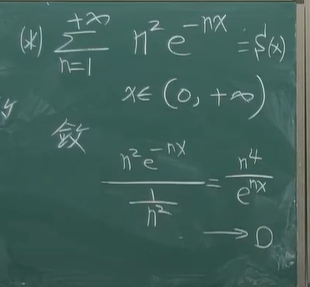 (*) \sum_{n=1}^{+\infty} n^2 e^{-nx} = S(x)
x \in (0, +\infty)
敛
\frac{n^2 e^{-nx}}{\frac{1}{n^2}} = \frac{n^4}{e^{nx}}
\rightarrow 0